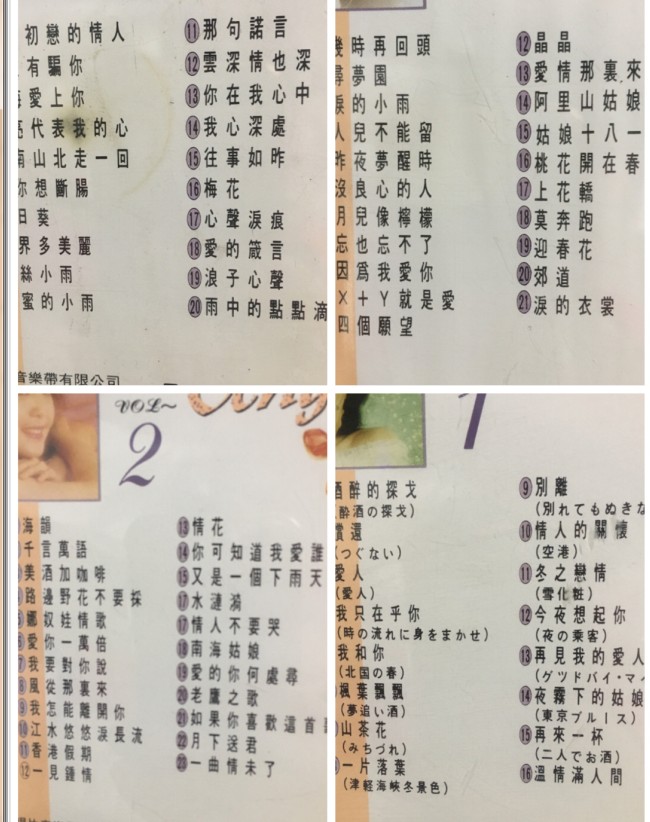 初戀的情人
有騙你
愛上你
代表我的心
南山北走一回
你想斷腸
日葵
界多美麗
絲小雨
蜜的小雨
⑪那句諾言
⑫雲深情也深
⑬你在我心中
⑭我心深處
⑮往事如昨
⑯梅花
⑰心聲淚痕
⑱愛的箴言
⑲浪子心聲
⑳雨中的點點滴
音樂帶有限公司
幾時再回頭
尋夢園
淚的小雨
人兒不能留
昨夜夢醒時
沒良心的人
月兒像檸檬
忘也忘不了
因為我愛你
X+Y就是愛
四個願望
⑫晶晶
⑬愛情那裏來
⑭阿里山姑娘
⑮姑娘十八一
⑯桃花開在春
⑰上花轎
⑱莫奔跑
⑲迎春花
⑳郊道
㉑淚的衣裳
VOL~
2
海韻
千言萬語
美酒加咖啡
路邊野花不要採
娜奴娃情歌
愛你一萬倍
⑦我要對你說
⑧風從那裏來
⑨我怎能離開你
⑩江水悠悠淚長流
⑪香港假期
⑫一見鍾情
⑬情花
⑭你可知道我愛誰
⑮又是一個下雨天
⑰水漣漪
⑰情人不要哭
⑱南海姑娘
⑲愛的你何處尋
⑳老鷹之歌
㉑如果你喜歡這首
㉒月下送君
㉓一曲情未了
1
酒醉的探戈
(酔酒の探戈)
償還
(つぐない)
愛人
(愛人)
我只在乎你
(時の流れに身をまかせ)
我和你
(北国の春)
楓葉飄飄
(夢追い酒)
山茶花
(みちづれ)
一片落葉
(津軽海峡冬景色)
⑨別離
(別れてもぬきな
⑩情人的關懷
(空港)
⑪冬之戀情
(雪化粧)
⑫今夜想起你
(夜の乗客)
⑬再見我的愛人
(グッドバイ・マイ
⑭夜霧下的姑娘
(東京ブルース)
⑮再來一杯
(二人でお酒)
⑯溫情滿人間